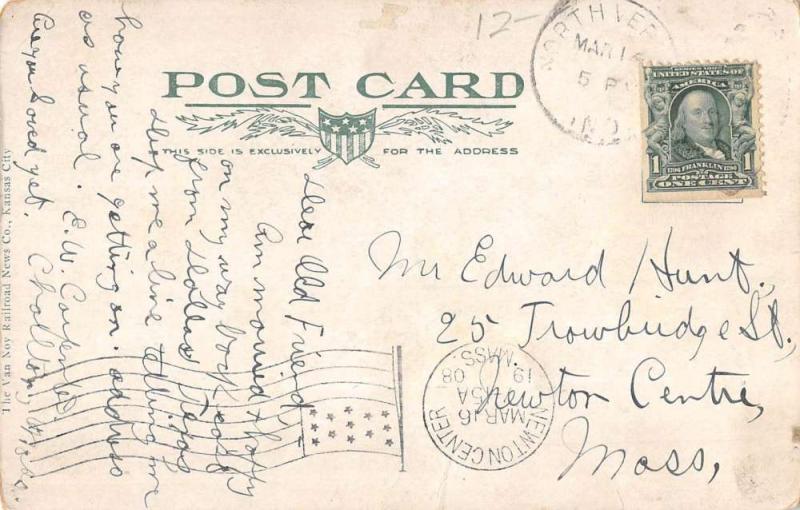 12-
NORTH VER
MAR 14
5 P
IND
POST CARD
THIS SIDE IS EXCLUSIVELY FOR THE ADDRESS
SERIES 1902
UNITED STATES OF
AMERICA
1 FRANKLIN 1
POSTAGE
ONE CENT
Mr Edward Hunt.,
25 Trowbridge St.,
Newton Centre,
Mass,
NEWTON CENTER
MAR 16
1908
MASS.
Dear Old Friend,
Am married & happy
on my way back east
from Dallas Texas
drop me a line telling me
how you are getting on. address
as usual. E.W. Carpenter
Are you loved yet. Mass.
The Van Noy Railroad News Co., Kansas City